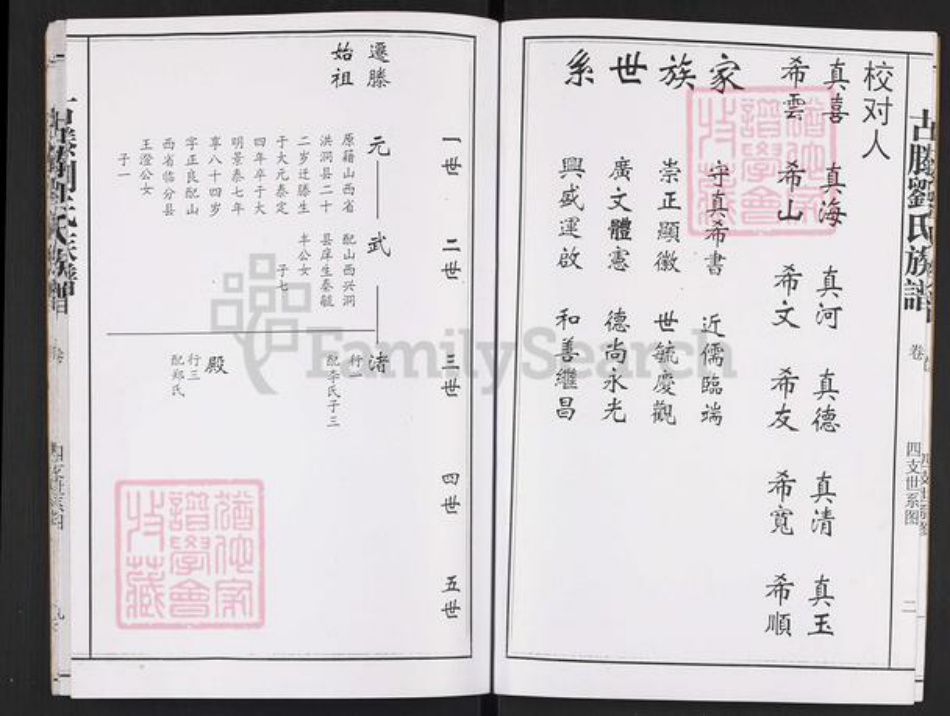 校对人
真喜 真海 真河 真德 真清 真玉
希雲 希山 希文 希友 希寬 希順
家族世系
守真希書 近儒臨端
崇正顯徽 世毓慶觀
廣文體憲 德尚永光
興盛運啟 和善繼昌
古滕劉氏族譜
卷
四支世系图
二
一世 二世 三世 四世 五世
遷滕
始祖
元
原籍山西省
洪洞县二十
二岁迁滕生
于大元泰定
四年卒于大
明景泰七年
享八十四岁
字正良配山
西省临分县
王澄公女
子一
武
配山西兴洞
县庠生秦毓
丰公女
子七
渚
行一
配李氏子三
殿
行三
配郑氏
FamilySearch
猶他家
譜學會
收藏
猶他家
譜學會
收藏